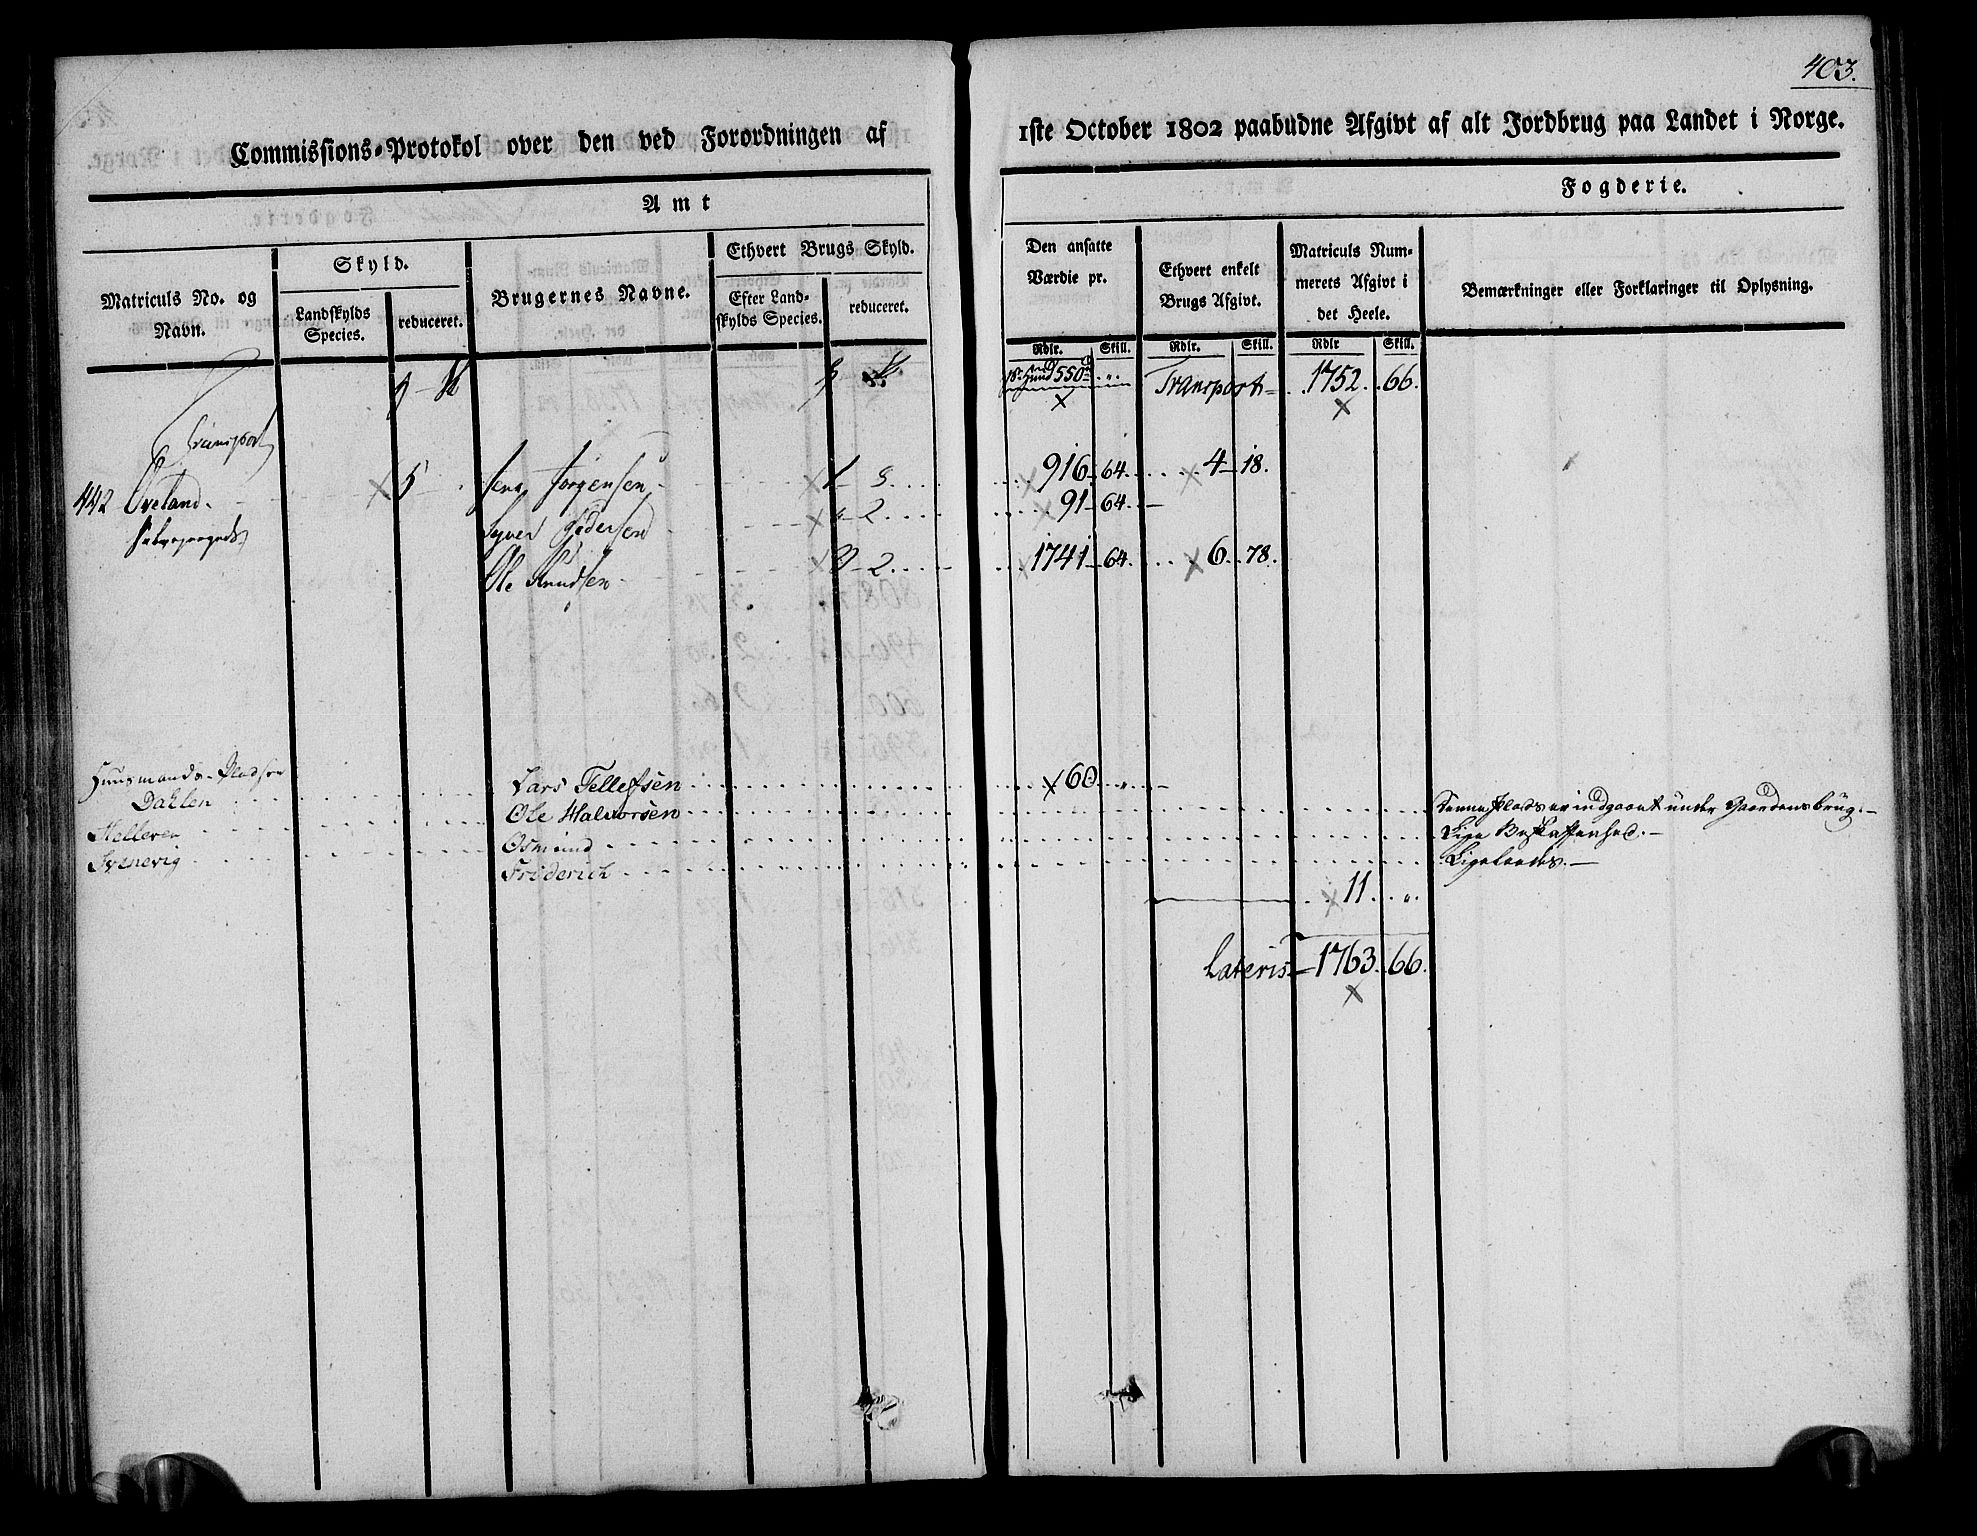 403.
Commissions-Protokol over den ved Forordningen af 1ste October 1802 paabudne Afgivt af alt Jordbrug paa Landet i Norge.
Amt Fogderie.
Matriculs No. og Navn.
Skyld.
Landskylds Species.
reduceret.
Brugernes Navne.
Ethvert Brugs Skyld.
Efter Landskylds Species.
reduceret.
Den ansatte Værdie pr.
Rdlr. Skill.
Ethvert enkelt Brugs Afgivt.
Rdlr. Skill.
Matriculs Nummerets Afgivt i det Heele.
Rdlr Skill.
Bemærkninger eller Forklaringer til Oplysning.
Transport 550 Transport 1752 66
442 Øveland 5 Jens Jörgensen 1 3 916 64 4 18.
Syver Pedersen 2 91 64
Ole Knudsen 3 2 1741 64 6 78.
Huusmands-Pladser
Dahlen Lars Tellefsen 60
Helleren Ole Halvorsen Denne Plads er indgaaet under Gaardens brug.
Svenevig Osmund Lige Beskaffenhed.
Friderich Ligeleedes.
11
Lateris 1763 66.